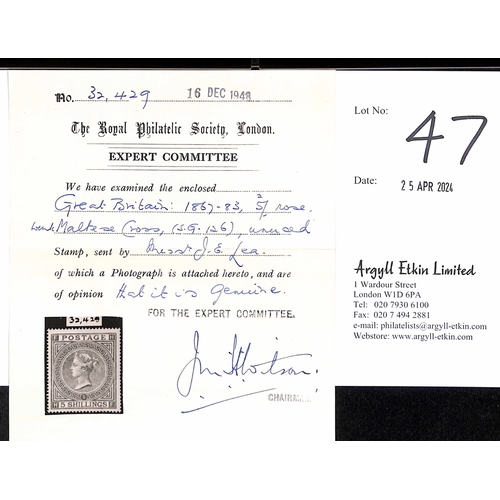 No. 32,429
16 DEC 1948
The Royal Philatelic Society, London.
EXPERT COMMITTEE
We have examined the enclosed
Great Britain: 1867-83, 5/ rose.
wmk Maltese Cross, (S.G. 126), unused
Stamp, sent by Messrs J. E. Lea.
of which a Photograph is attached hereto, and are
of opinion that it is Genuine.
FOR THE EXPERT COMMITTEE.
CHAIRMAN
32,429
POSTAGE
5 SHILLINGS
Lot No:
47
Date:
25 APR 2024
Argyll Etkin Limited
1 Wardour Street
London W1D 6PA
Tel: 020 7930 6100
Fax: 020 7 494 2881
e-mail: philatelists@argyll-etkin.com
Webstore: www.argyll-etkin.com